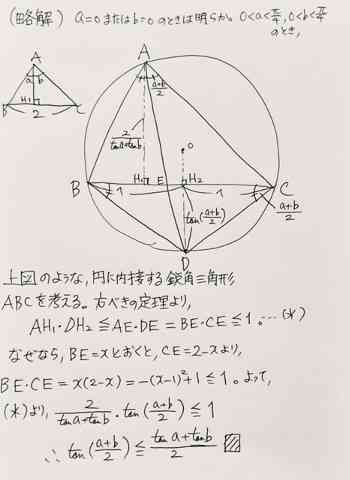 (略解) a=0 または b=0 のときは明らか。0<a<π/4, 0<b<π/4 のとき,
A
a b
B H₁ C
2
A
(a+b)/2
2/(tan a+tan b)
O
B 1 H₁ E H₂ 1 C
tan((a+b)/2)
(a+b)/2
D
上図のような,円に内接する鋭角三角形
ABCを考える。方べきの定理より,
AH₁・DH₂≦AE・DE=BE・CE≦1。…(※)
なぜなら, BE=xとおくと, CE=2-xより,
BE・CE=x(2-x)=-(x-1)²+1≦1。よって,
(※)より, 2/(tan a+tan b)・tan((a+b)/2)≦1
∴ tan((a+b)/2)≦(tan a+tan b)/2